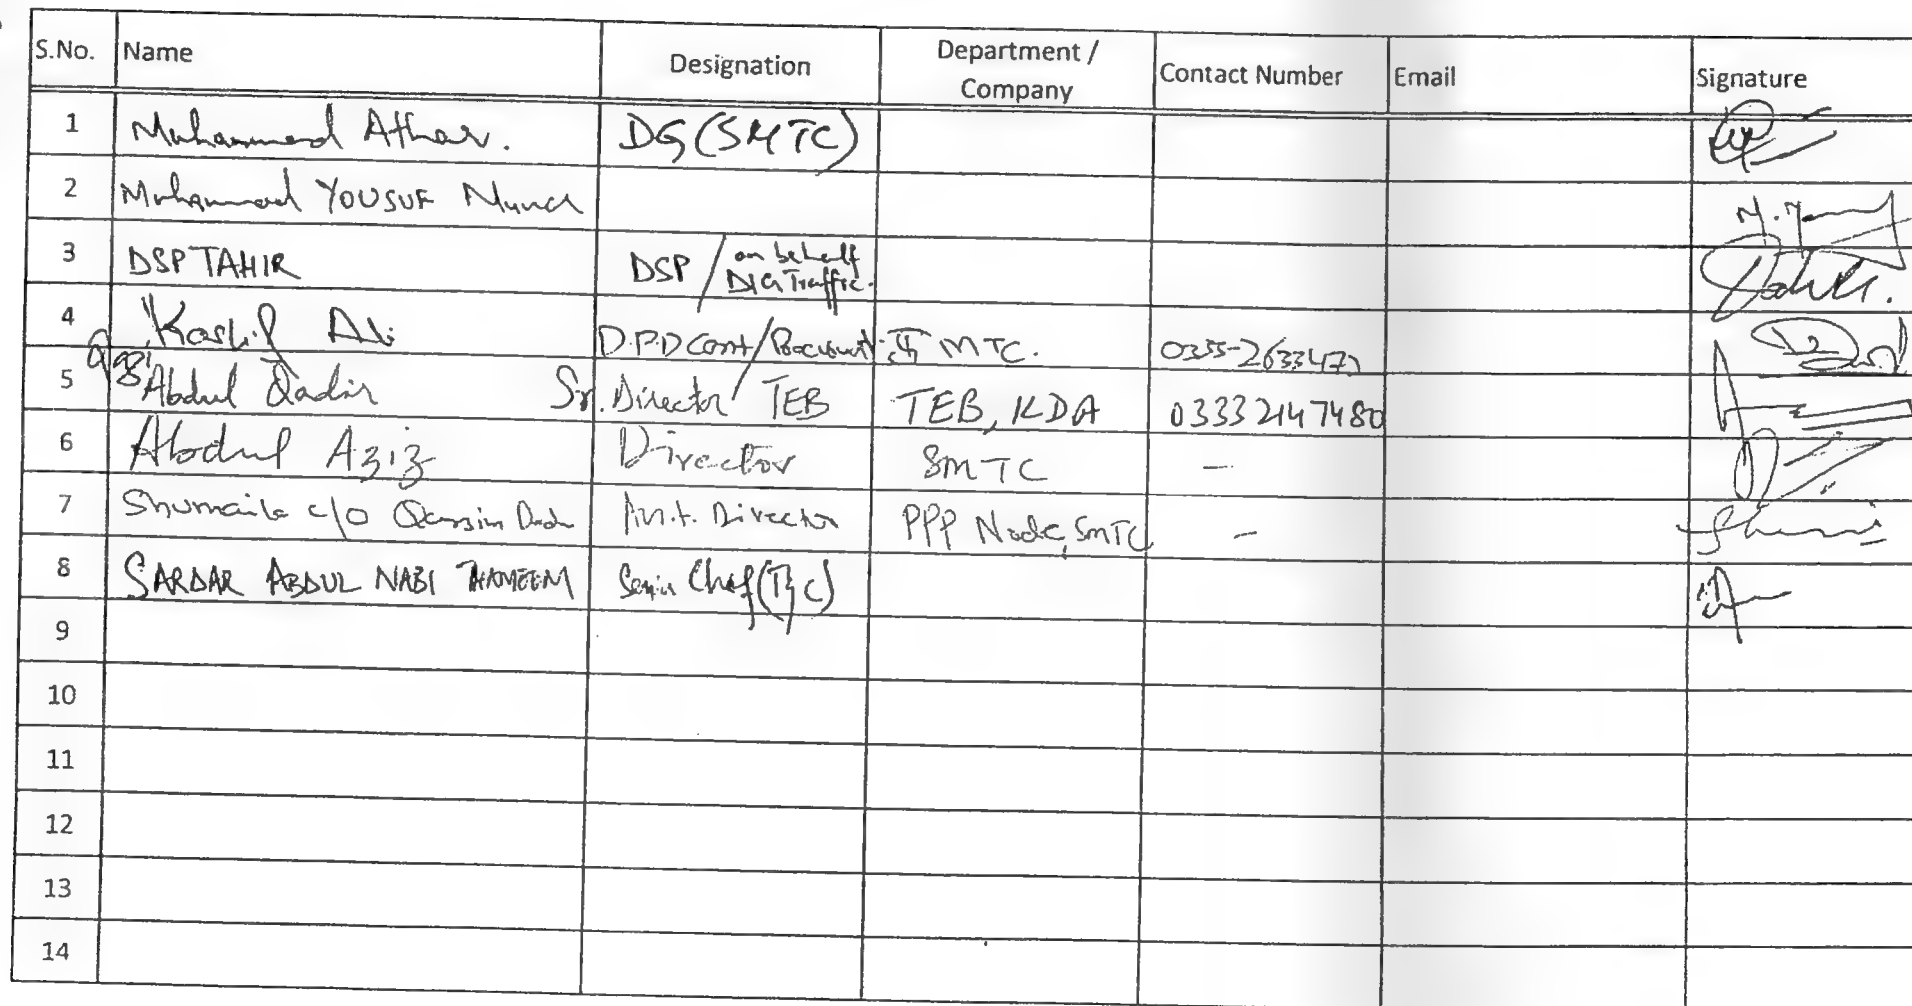 S.No. Name Designation Department / Company Contact Number Email Signature
1 Muhammad Athar. DG (SMTC)
2 Muhammad YOUSUF
3 DSP TAHIR DSP / on behalf DIG Traffic.
4 Kashif Ali D.P.D Cont/ MTC.
5 Abdul Qadir Sr. Director TEB TEB, KDA 03332147480
6 Abdul Aziz Director SMTC -
7 Shumaila c/o Qassim Director PPP Node, SMTC -
8 SARDAR ABDUL NABI Chief (T&C)
9
10
11
12
13
14